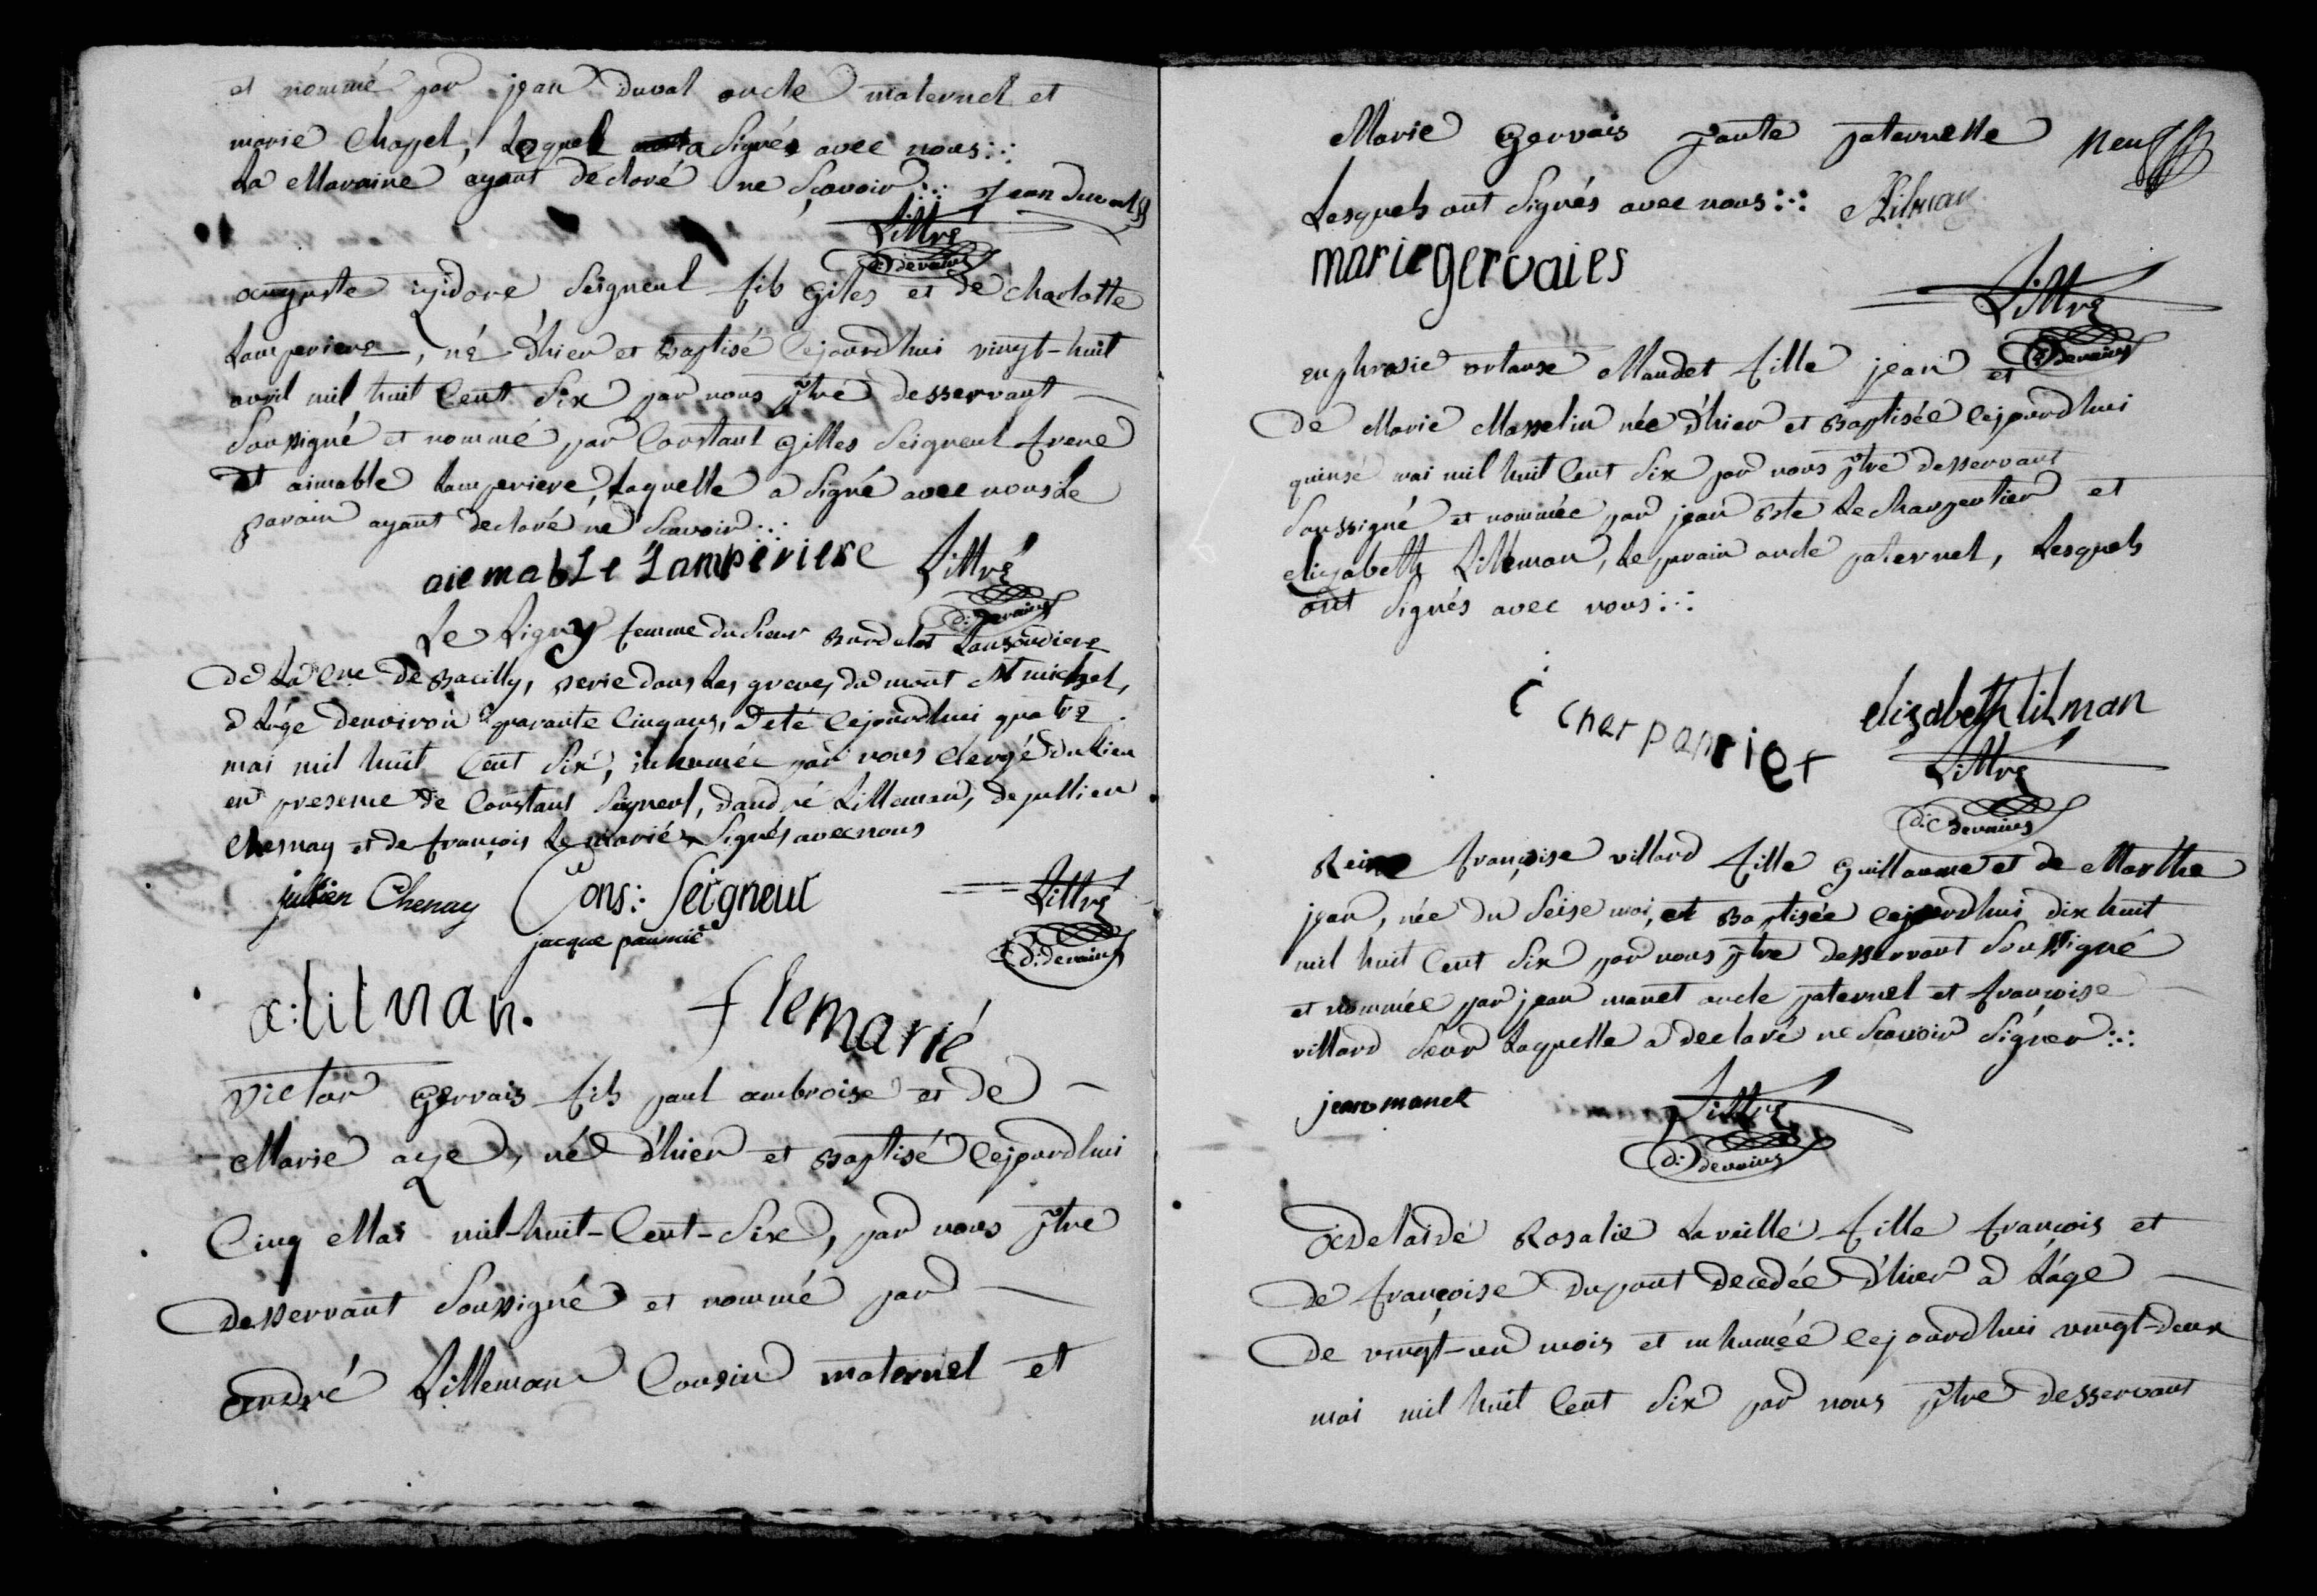 et nommé par jean Duval oncle maternel et
marie Chapel, Lequel a Signés avec nous
La Maraine ayant declaré ne Scavoir jean duval
Littré
auguste izidore Seigneul fils Giles et de charlotte
Lamperiere, né d'hier et Baptisé Cejourdhui vingt-huit
avril mil huit Cent Six par nous ptre desservant
Soussigné et nommé par Constant Gilles Seigneul frere
et aimable Lamperiere, Laquelle a Signé avec nous Le
parain ayant declaré ne Scavoir
aiemable Lamperiere Littré
di devains
Le Ligny femme du Sieur Burdelot
De La Cne de Bacilly, perie dans Les greves du mont St michel,
a Lâge denviron quarante Cinq ans, a eté Cejourdhui quatre
mai mil huit Cent Six, inhumée par nous Clergé du Lieu
en presence de Constant Seigneul, dandré Lilleman, de jullien
Chesnay et de françois Le marié Signés avec nous
jullien Chenay Cons: Seigneul Littré
jacque paumié
di devains
a: lilman. f lemarié
Victor Gervais fils paul ambroise et de
Marie aze, né d'hier et Baptisé Cejourdhui
Cinq Mai mil-huit-Cent-Six, par nous ptre
desservant Soussigné et nommé par
andré Lilleman Cousin maternel et
Marie Gervais tante paternelle
Lesquels ont Signés avec nous A Lilman
marie gervaies
Littré
di devains
euphrosie ortanse Maudet fille jean et
de Marie Masselin née d'hier et Baptisée Cejourdhui
quinsé mai mil huit Cent Six par nous ptre desservant
Soussigné et nommée par jean Bte Le Charpentier et
elizabeth Lilleman, Le parain oncle paternel, Lesquels
ont Signés avec nous
elizabeth lilman
Littré
di devains
Reine françoise villard fille Guillaume et de Marthe
jean, née du Seise mai, et Baptisée Cejourdhui dix huit
mil huit Cent Six par nous ptre desservant Soussigné
et nommée par jean manet oncle paternel et françoise
villard Sœur Laquelle a declaré ne Scavoir Signer
jean manet Littré
di devains
adelaïde Rosalie Laveillé fille françois et
de françoise Dupont decedée d'hier a Lâge
de vingt-un mois et inhumée Cejourdhui vingt-deux
mai mil huit Cent Six par nous ptre desservant